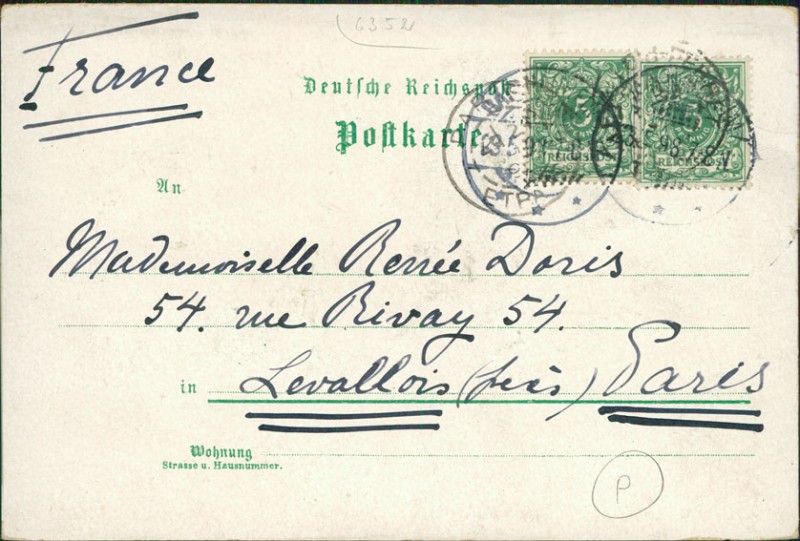 6352
France
Deutsche Reichspost
Postkarte
5
REICHSPOST
5
REICHSPOST
An
Mademoiselle Renée Doris
54. rue Rivay 54.
in Levallois (près) Paris
Wohnung
Strasse u. Hausnummer.
P